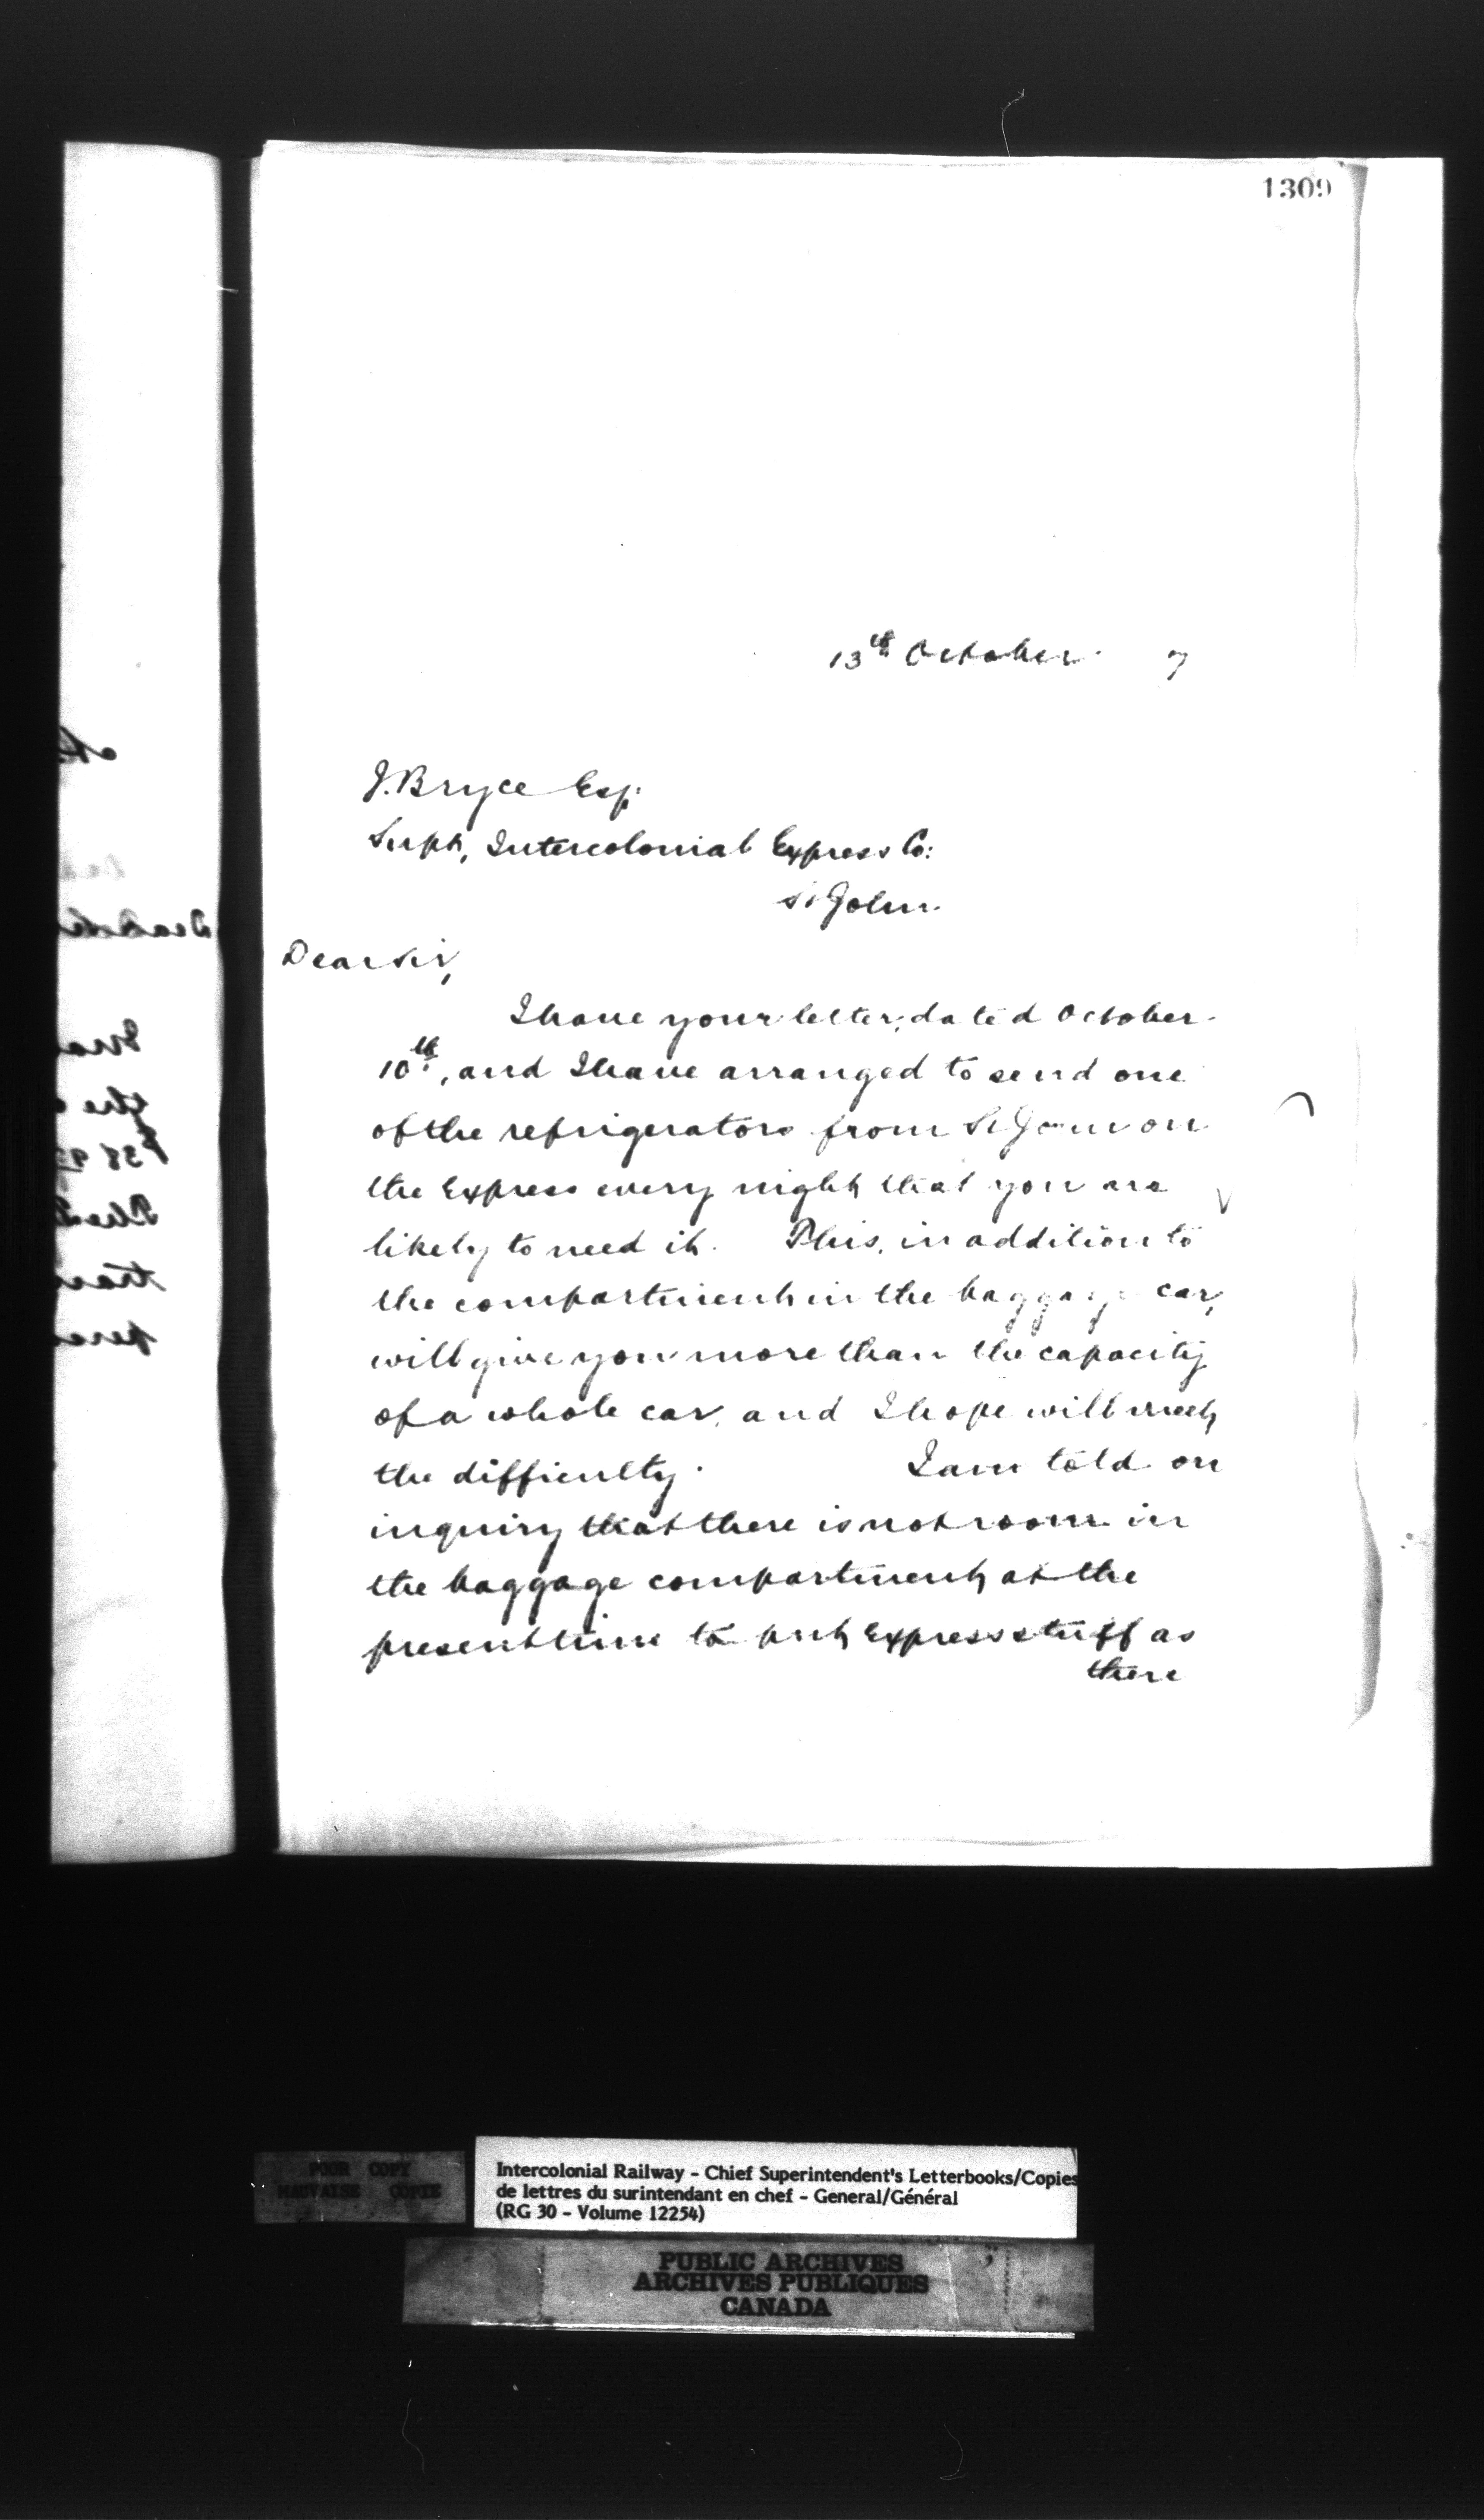 1309
13th October 7
J. Bryce Esq.
Supt, Intercolonial Express Co:
St John.
Dear Sir,
I have your letter, dated October
10th, and I have arranged to send one
of the refrigerators from St John on
the Express every night that you are
likely to need it. This, in addition to
the compartment in the baggage car,
will give you more than the capacity
of a whole car, and I hope will meet
the difficulty. I am told on
inquiry that there is not room in
the baggage compartment at the
present time to put Express stuff as
there
POOR COPY
MAUVAISE COPIE
Intercolonial Railway - Chief Superintendent's Letterbooks/Copies
de lettres du surintendant en chef - General/Général
(RG 30 - Volume 12254)
PUBLIC ARCHIVES
ARCHIVES PUBLIQUES
CANADA